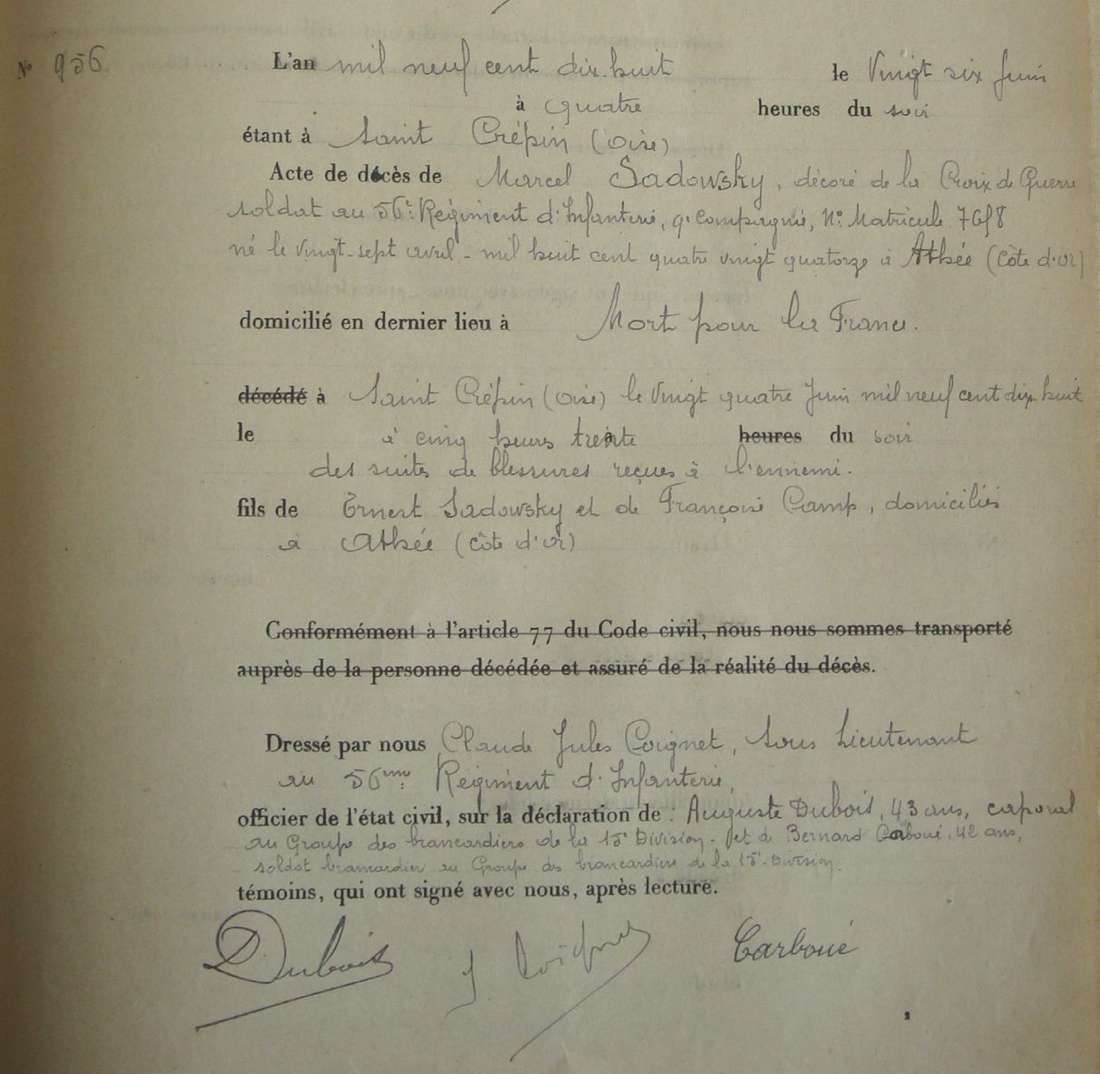 N° 956
L'an mil neuf cent dix-huit le Vingt six Juin
à Quatre heures du soir
étant à Saint Crépin (Oise)
Acte de décès de Marcel Sadowsky, décoré de la Croix de Guerre
soldat au 56e Régiment d'Infanterie, 9e Compagnie, No Matricule
né le Vingt-sept avril - mil huit cent quatre vingt quatorze à Athée (Côte d'or)
domicilié en dernier lieu à Mort pour la France.
décédé à Saint Crépin (Oise) le Vingt quatre Juin mil neuf cent dix huit
le à cinq heures trente heures du soir
des suites de blessures reçues à l'ennemi.
fils de Ernest Sadowsky et de Françoise Camp, domiciliés
à Athée (Côte d'or)
Conformément à l'article 77 du Code civil, nous nous sommes transporté
auprès de la personne décédée et assuré de la réalité du décès.
Dressé par nous Claude Jules Coignet, Sous Lieutenant
au 56eme Régiment d'Infanterie,
officier de l'état civil, sur la déclaration de : Auguste Dubois, 43 ans, caporal
au Groupe des brancardiers de la 15e Division - et de Bernard Carboué, 42 ans,
soldat brancardier au Groupe des brancardiers de la 15e Division.
témoins, qui ont signé avec nous, après lecture.
Dubois J Coignet Carboué